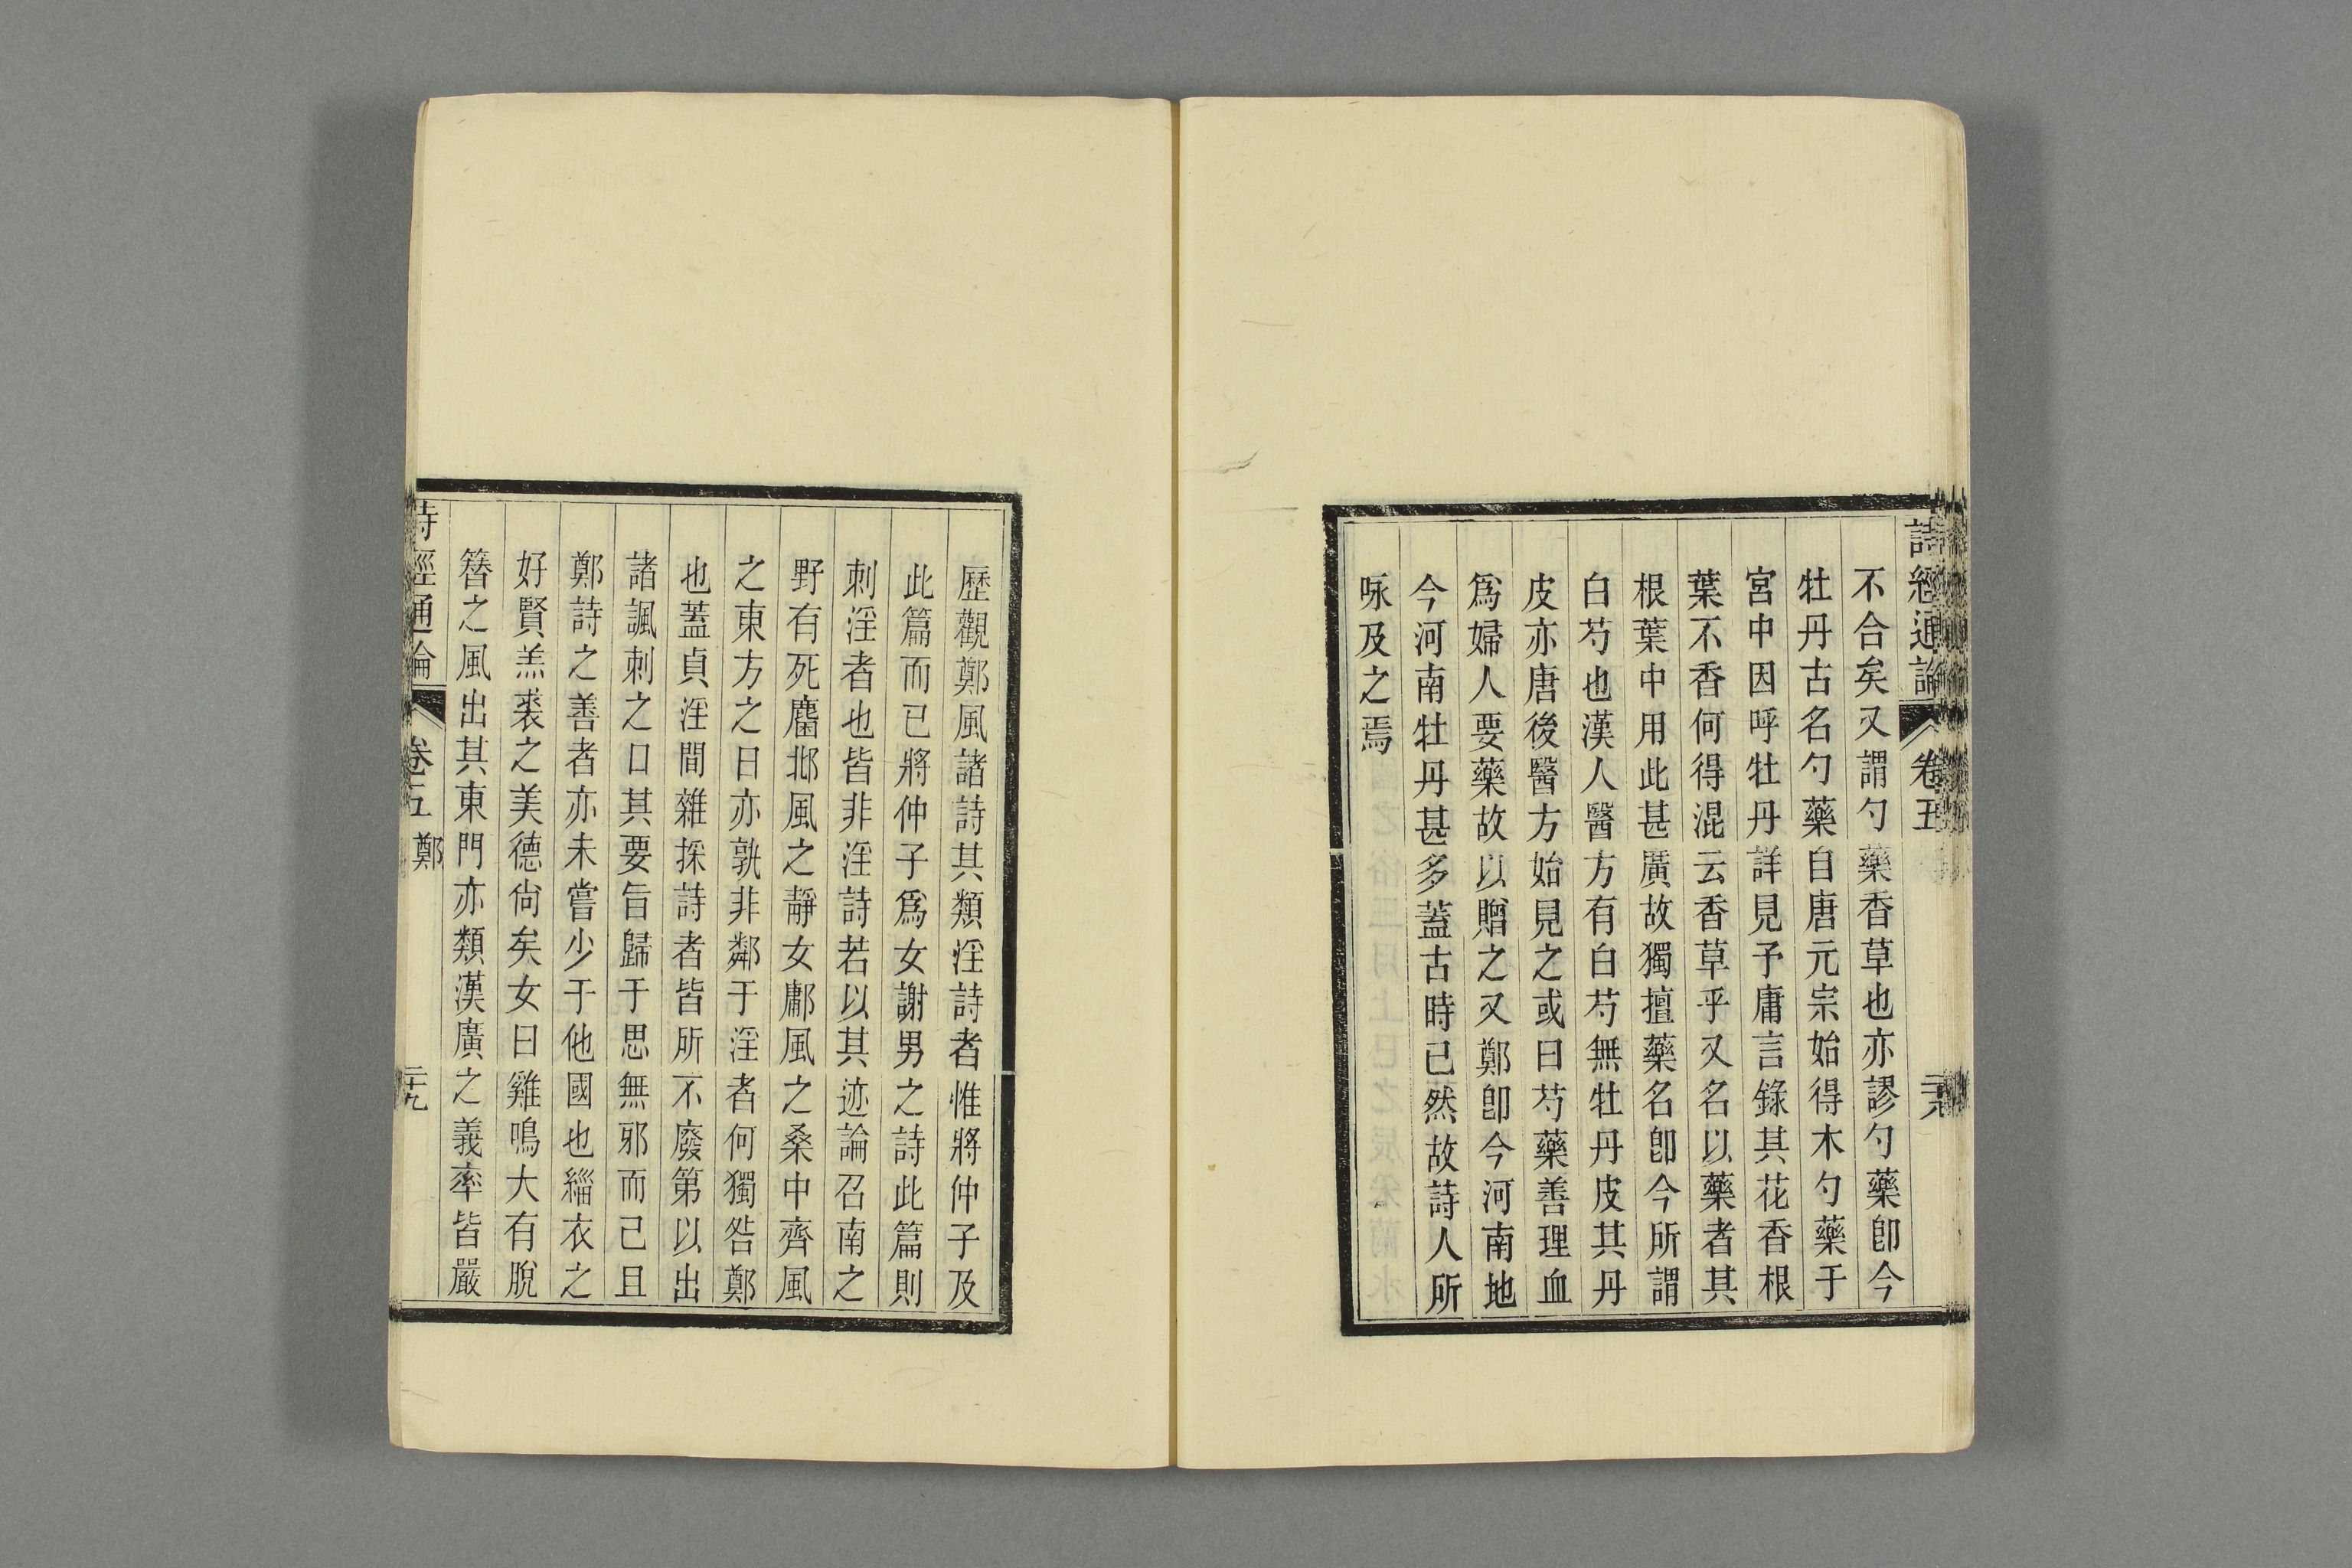 詩經通論 卷五 二十八
不合矣又謂勺藥香草也亦謬勺藥卽今
牡丹古名勺藥自唐元宗始得木勺藥于
宮中因呼牡丹詳見予庸言錄其花香根
葉不香何得混云香草乎又名以藥者其
根葉中用此甚廣故獨擅藥名卽今所謂
白芍也漢人醫方有白芍無牡丹皮其丹
皮亦唐後醫方始見之或曰芍藥善理血
爲婦人要藥故以贈之又鄭卽今河南地
今河南牡丹甚多蓋古時已然故詩人所
咏及之焉
歷觀鄭風諸詩其類淫詩者惟將仲子及
此篇而已將仲子爲女謝男之詩此篇則
刺淫者也皆非淫詩若以其迹論召南之
野有死麕邶風之靜女鄘風之桑中齊風
之東方之日亦孰非鄰于淫者何獨咎鄭
也蓋貞淫間雜採詩者皆所不廢第以出
諸諷刺之口其要旨歸于思無邪而已且
鄭詩之善者亦未嘗少于他國也緇衣之
好賢羔裘之美德尙矣女曰雞鳴大有脫
簪之風出其東門亦類漢廣之義率皆嚴
詩經通論 卷五 鄭 二十九